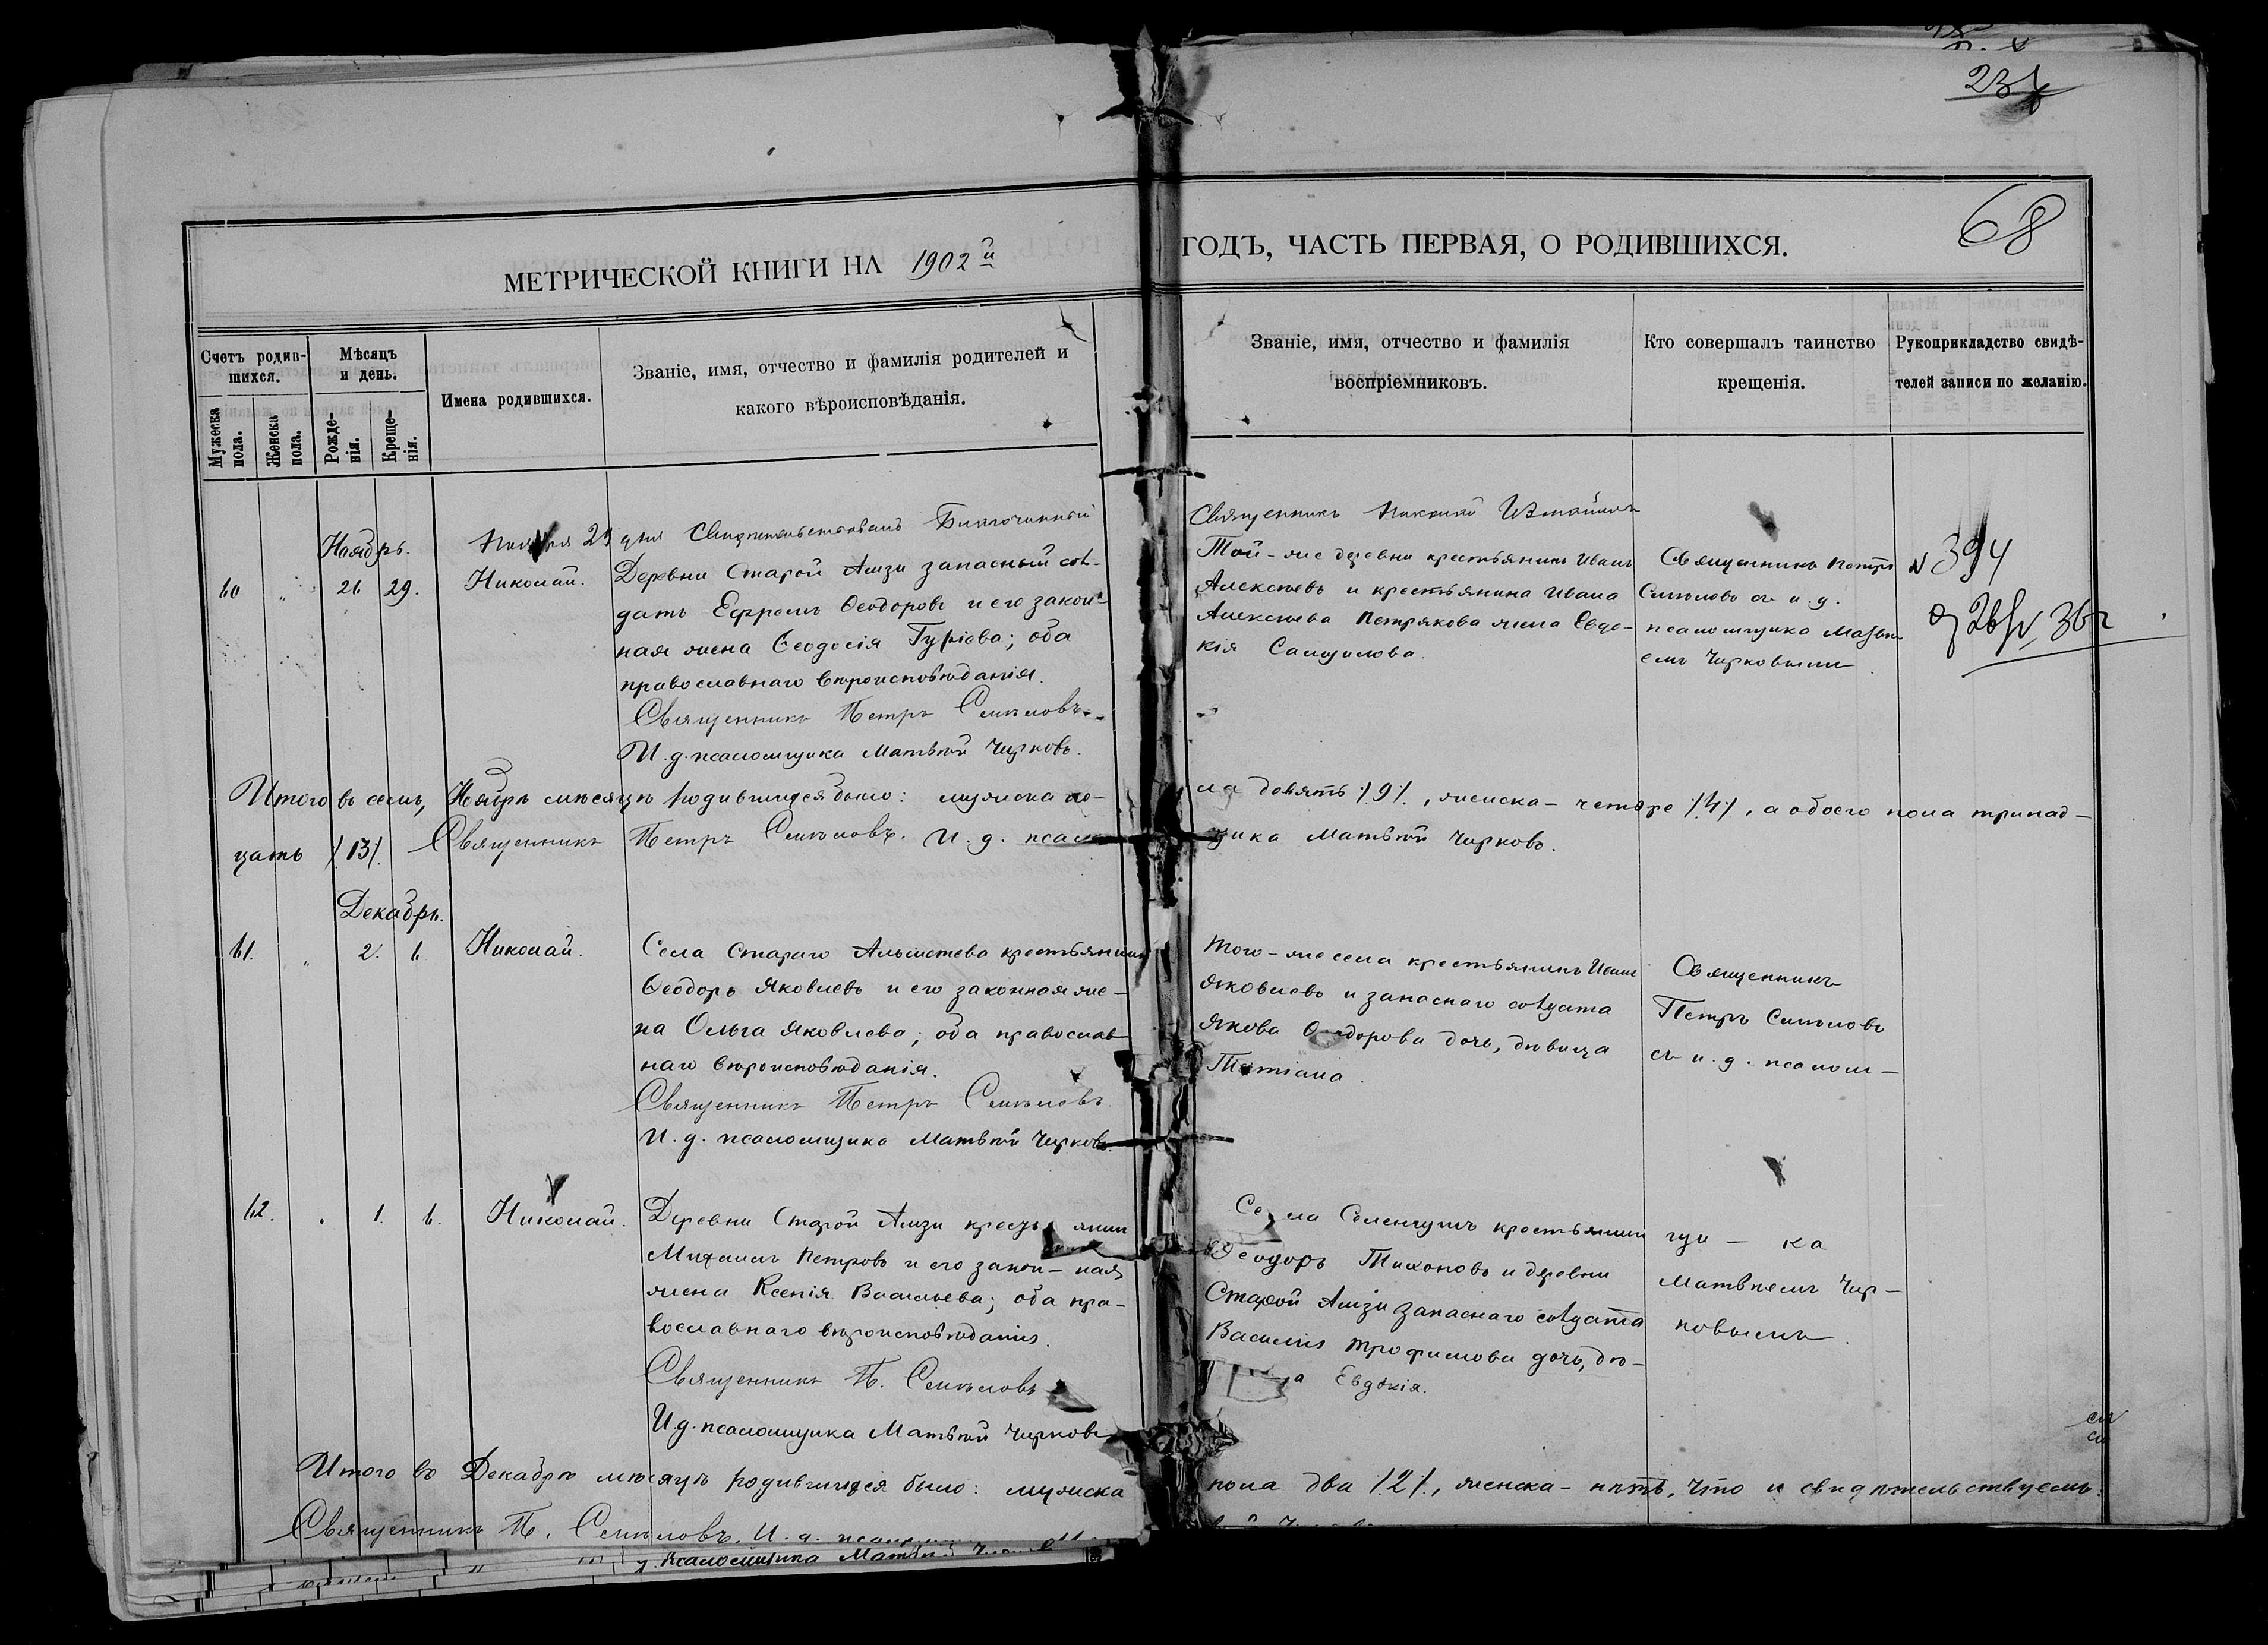 68
МЕТРИЧЕСКОЙ КНИГИ НА 1902й ГОДЪ, ЧАСТЬ ПЕРВАЯ, О РОДИВШИХСЯ.
Счетъ родив-
шихся.
Мужеска
пола.
Женска
пола.
Мѣсяцъ
и день.
Рожде-
нія.
Креще-
нія.
Имена родившихся.
Званіе, имя, отчество и фамилія родителей и
какого вѣроисповѣданія.
Званіе, имя, отчество и фамилія
воспріемниковъ.
Кто совершалъ таинство
крещенія.
Рукоприкладство свидѣ-
телей записи по желанію.
Ноября 29 дня Свидѣтельствовалъ Благочинный
Священникъ
Ноябрь.
60 " 26 29.
Николай.
Деревни Старой Амзи запасный сол-
датъ Ефремъ Ѳеодоровъ и его закон-
ная жена Ѳеодосія Гуріева; оба
православнаго вѣроисповѣданія.
Священникъ Петръ
И. д. псаломщика Матвѣй Чирковъ.
Той-же деревни крестьянинъ Иванъ
Алексѣевъ и крестьянина Ивана
Алексѣева Петрякова жена Евдо-
кія
Священникъ Петръ
съ и. д.
псаломщика Матвѣ-
емъ Чирковымъ
N 394
Итого въ семъ, Ноябрѣ мѣсяцѣ родившихся было: мужска по-
ла девять /9/, женска - четыре /4/, а обоего пола тринад-
цать /13/. Священникъ Петръ И. д. псалом-
щика Матвѣй Чирковъ.
Декабрь.
61. " 2. 6
Николай.
Села Стараго крестьянинъ
Ѳеодоръ Яковлевъ и его законная же-
на Ольга Яковлева; оба православ-
наго вѣроисповѣданія.
Священникъ Петръ
И. д. псаломщика Матвѣй Чирковъ.
Того-же села крестьянинъ Иванъ
Яковлевъ и запаснаго солдата
Якова Ѳеодорова дочь, дѣвица
Татіана.
Священникъ
Петръ
съ и. д. псалом-
62. " 1. 6.
Николай.
Деревни Старой Амзи крестьянинъ
Михаилъ Петровъ и его закон-ная
жена Ксенія Васильева; оба пра-
вославнаго вѣроисповѣданія.
Священникъ П.
И. д. псаломщика Матвѣй Чирковъ
Села крестьянинъ
Ѳеодоръ Тихоновъ и деревни
Старой Амзи запаснаго солдата
Василія Трофимова дочь, дѣ-
Евдокія.
щи - ка
Матвѣемъ Чир-
ковымъ.
Итого въ Декабрѣ мѣсяцѣ родившихся было: мужска
пола два /2/, женска - пять, что и свидѣтельствуемъ:
Священникъ П. И. д.
псаломщика